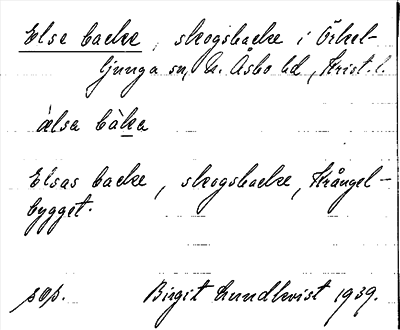 Else backe, skogsbacke i Örkel-
ljunga sn, N. Åsbo hd, Krist. l.
àlsa bàka
Elsas backe, skogsbacke, Krångel-
bygget.
sop. Birgit Lundkvist 1939.